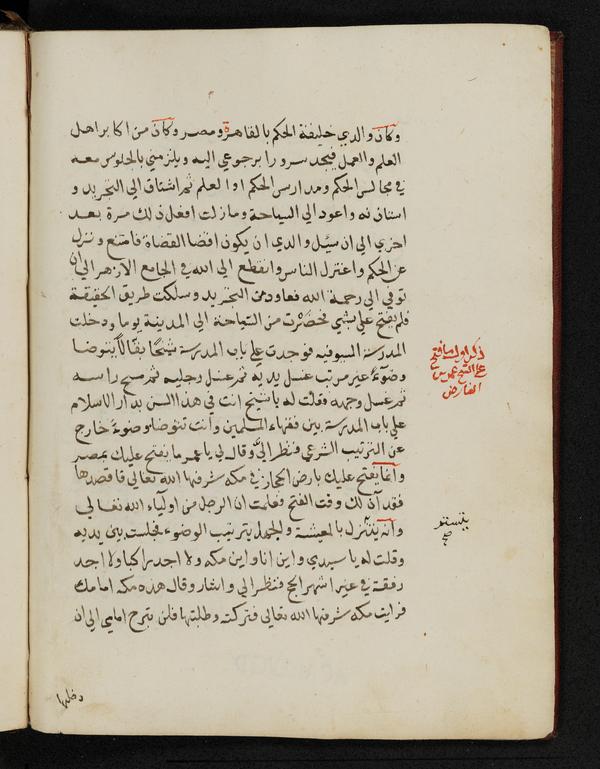 وكان والدي خليفة الحكم بالقاهرة ومصر وكان من اكابر اهل
العلم والعمل فيجد سرورا برجوعي اليه ويلزمني بالجلوس معه
في مجالس الحكم ومدارس الحكم او العلم ثم اشتاق الي التجريد و
استاذنه واعود الي السياحة وما زلت افعل ذلك مرة بعد
اخري الي ان سيل والدي ان يكون اقضا القضاة فامتنع ونزل
عن الحكم واعتزل الناس وانقطع الي الله في الجامع الازهر الي ان
توفي الي رحمة الله فعاودت التجريد وسلكت طريق الحقيقة
فلم يفتح علي بشي فحضرت من السياحة الي المدينة يوما ودخلت
المدرسة السيوفيه فوجدت علي باب المدرسة شيخا بقالا يتوضا
وضوءا غير مرتب غسل يديه ثم غسل رجليه ثم مسح راسه
ثم غسل وجهه فقلت له يا شيخ انت في هذا السن بدار الاسلام
علي باب المدرسة بين فقهاء المسلمين وانت تتوضا وضوءا خارج
عن الترتيب الشرعي فنظر الي وقال لي يا عمر ما يفتح عليك بمصر
وانما يفتح عليك بارض الحجاز في مكه شرفها الله تعالي فاقصدها
فقد آن لك وقت الفتح فعلمت ان الرجل من اولياء الله تعالي
وانه يتستر بالمعيشة والجهل بترتيب الوضوء فجلست بين يديه
وقلت له يا سيدي واين انا واين مكه ولا اجد راكبا ولا اجد
رفقة في غير اشهر الحج فنظر الي واشار وقال هذه مكه امامك
فرايت مكه شرفها الله تعالي فتركته وطلبتها فلن تبرح امامي الي ان
ذكر اول ما فتح
علي الشيخ عمر بن
الفارض
يتستر
صح
دخلتها